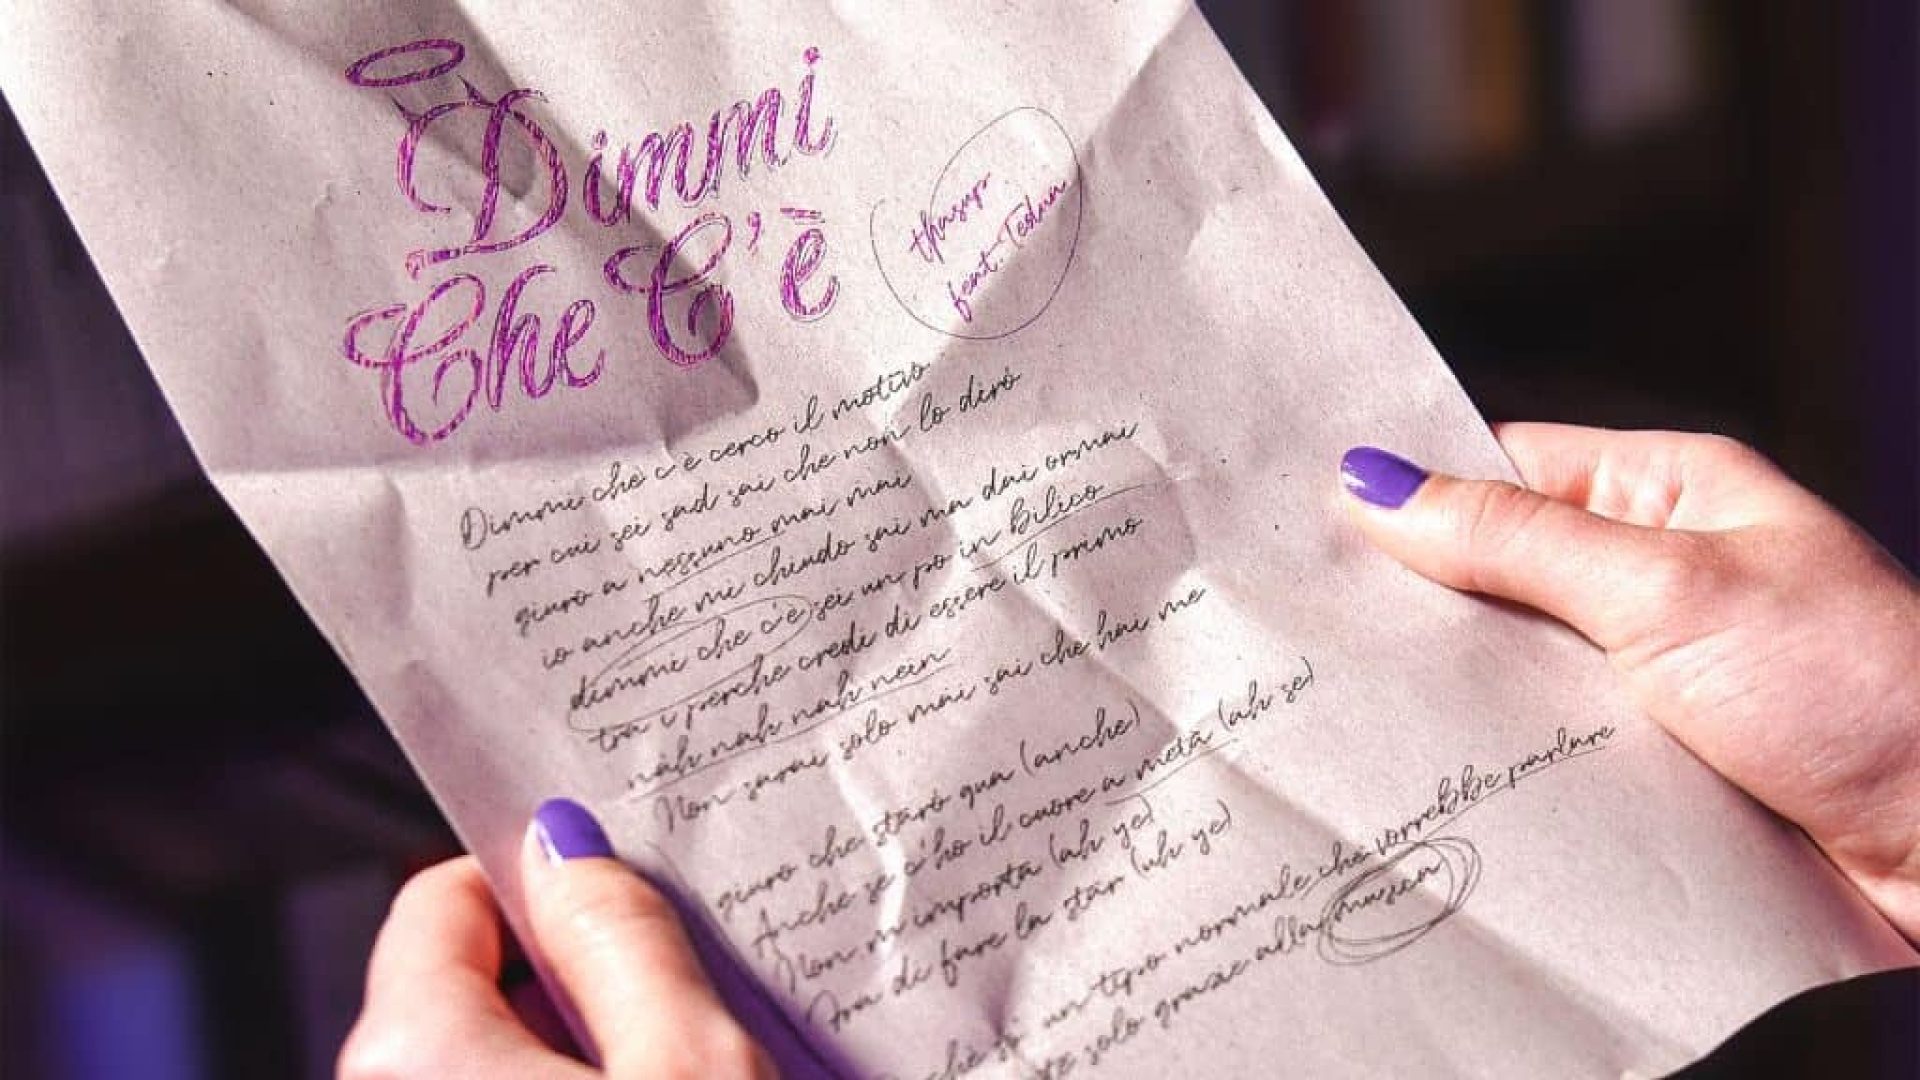 Dimmi
Che C'è
thasup
feat. Tedua
Dimmi che c'è cerco il motivo
per cui sei sad sai che non lo dirò
giuro a nessuno mai mai
io anche mi chiudo sai ma dai ormai
dimmi che c'è sei un po in bilico
tra i perché credi di essere il primo
nah nah nah nein
Non sarai solo mai sai che hai me
giuro che starò qua (anche)
Anche se c'ho il cuore a metà (uh se)
Non m'importa (uh ye)
Ora di fare la star (uh ye)
un tipo normale che vorrebbe parlare
solo grazie alla musica